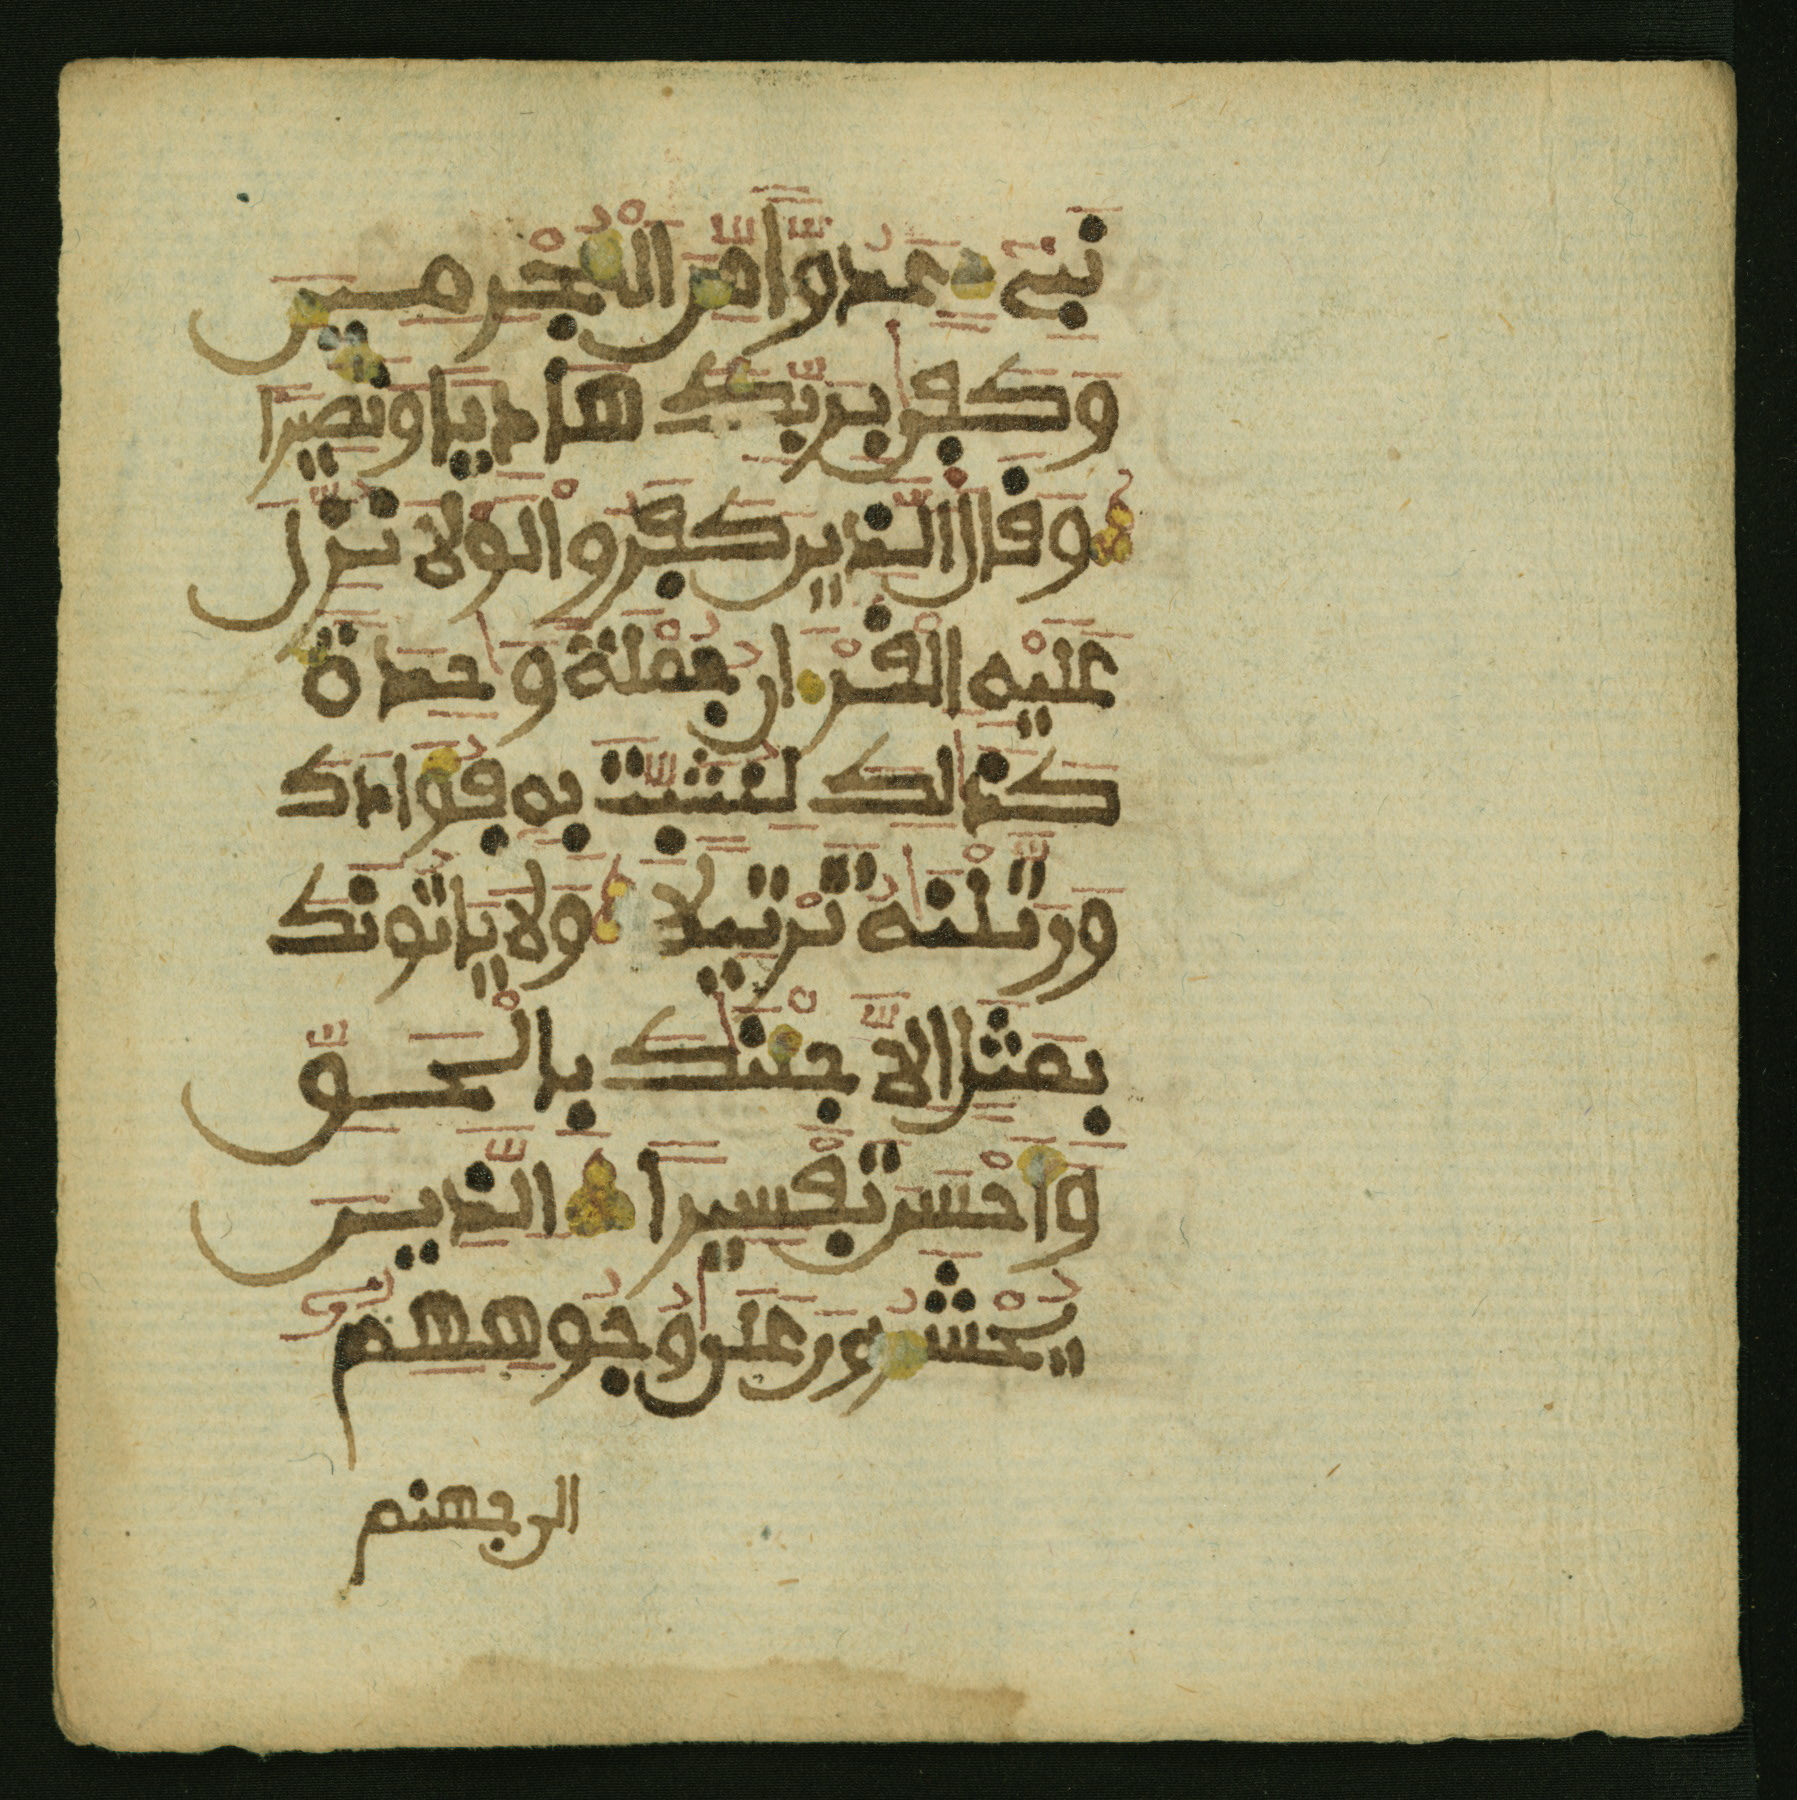 نَبِيٓءٍ عَدُوّاً مِّنَ ٱلْمُجْرِمِينَ
وَكَفَىٰ بِرَبِّكَ هَادِياً وَنَصِيراً
وَقَالَ ٱلَّذِينَ كَفَرُواْ لَوْلَا نُزِّلَ
عَلَيْهِ ٱلْقُرْءَانُ جُمْلَةً وَٰحِدَةً
كَذَٰلِكَ لِنُثَبِّتَ بِهِۦ فُؤَادَكَ
وَرَتَّلْنَٰهُ تَرْتِيلاً وَلَا يَأْتُونَكَ
بِمَثَلٍ إِلَّا جِئْنَٰكَ بِٱلْحَقِّ
وَأَحْسَنَ تَفْسِيراً ٱلَّذِينَ
يُحْشَرُونَ عَلَىٰ وُجُوهِهِمُۥٓ
الى جهنم